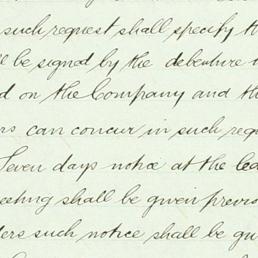 such request shall specify th
ll be signed by the debenture
d on the Company and the
rs can concur in such requ
Seven days notice at the lea
eeting shall be given previo
ders such notice shall be gi